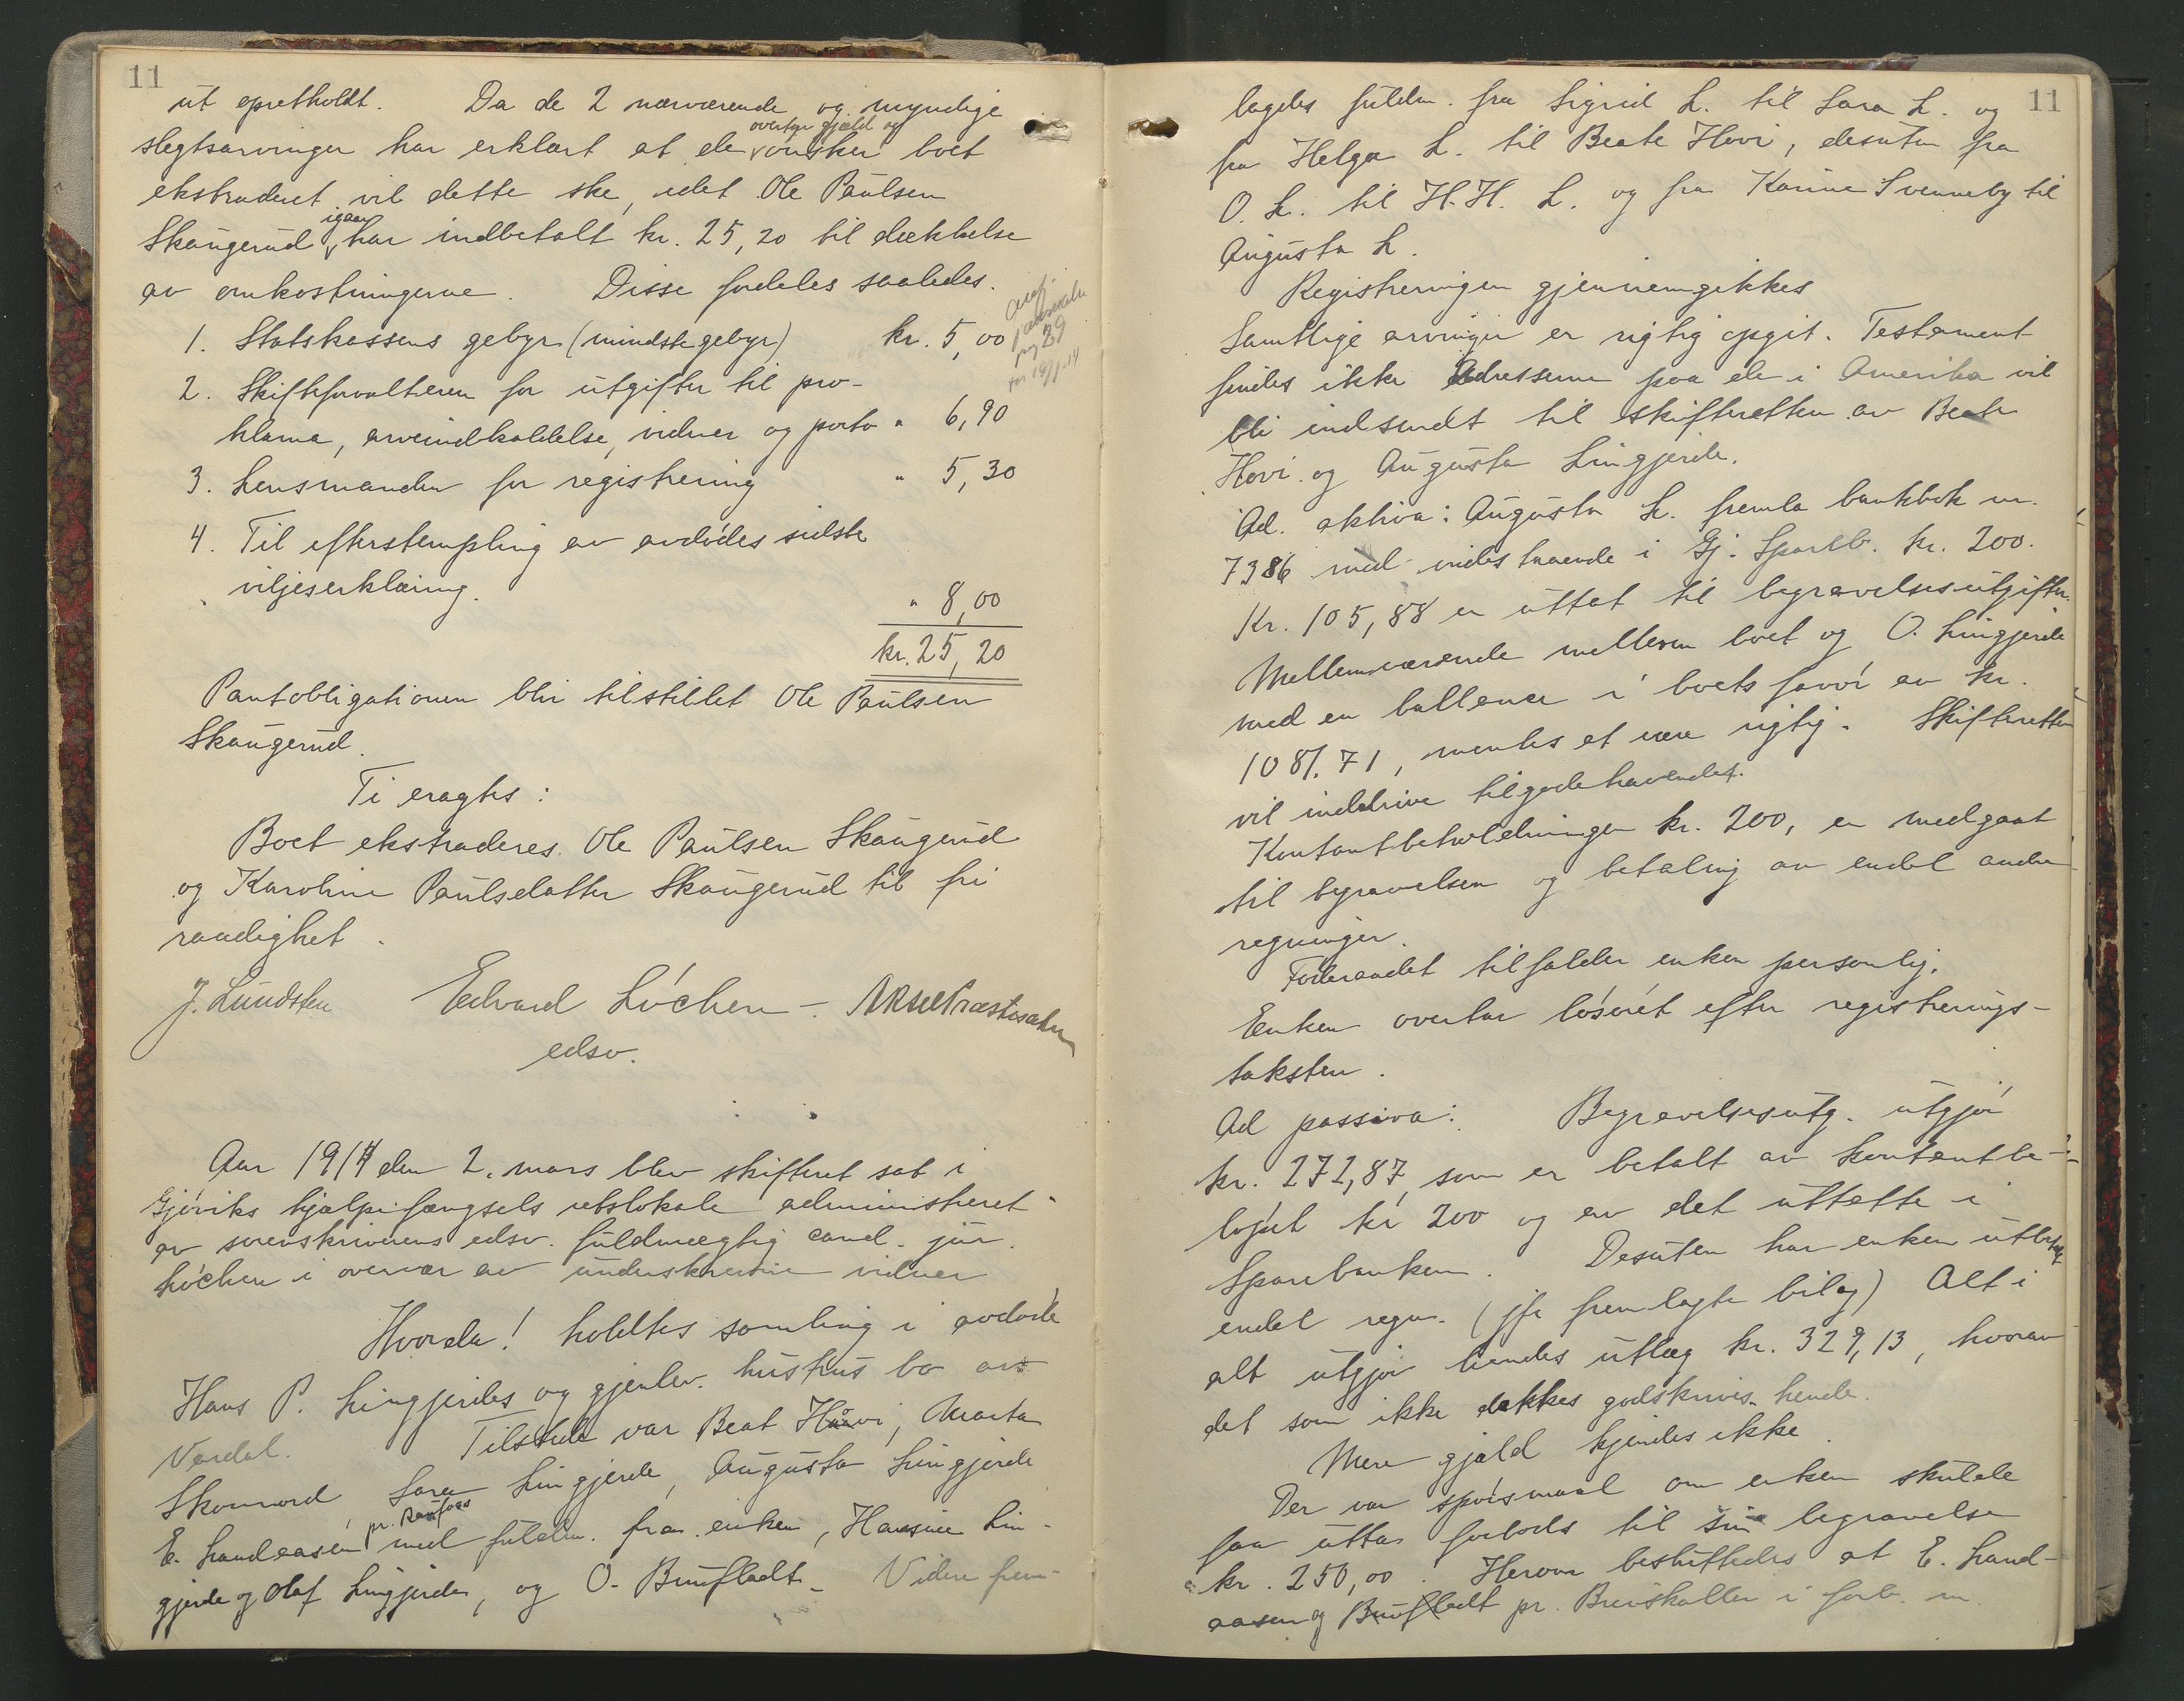 11
ut opretholdt. Da de 2 nærværende og myndige
slegtsarvinger har erklært at de overtar gjæld og ønsker boet
ekstraderet vil dette ske, idet Ole Paulsen
Skaugerud igaar har indbetalt kr. 25,20 til dækkelse
av omkostningerne. Disse fordeles saaledes.
1. Statskassens gebyr (mindste gebyr) kr. 5,00
2. Skifteforvalteren for utgifter til pro-
klama, arveindkaldelse, vidner og porto " 6,90
3. Lensmanden for registrering " 5,30
4. Til efterstempling av avdødes sidste
viljeserklæring.
" 8,00
kr. 25,20
Pantobligationen blir tilstillet Ole Paulsen
Skaugerud.
Ti eragtes:
Boet ekstraderes Ole Paulsen Skaugerud
og Karoline Paulsdatter Skaugerud til fri
raadighet.
J. Lundsten Edvard Löchen. Aksel Præstesæter
edsv.
Aar 1914 den 2. mars blev skifteret sat i
Gjøviks hjælpefængsels retslokale administreret
av sorenskriverens edsv. fuldmægtig cand. jur.
Löchen i overvær av underskrevne vidner
Hvorda! holdtes samling i avdøde
Hans P. Lingjerdes og gjenlev. hustrus bo av
Vardal. Tilstede var Beat Hovi, Marta
Skonnord, Sara Lingjerde, Augusta Lingjerde
E. Landaasen pr. Raufoss med fuldm. fra enken, Hansine Lin-
gjerde og Olaf Lingjerde, og O. Brufladt. Videre frem-
11
lagdes fuldm. fra Sigrid L. til Sara L. og
fra Helga L. til Beate Hovi, desuten fra
O. L. til H.H. L. og fra Karine Svenneby til
Augusta L.
Registreringen gjennemgikkes
Samtlige arvinger er rigtig opgit. Testament
findes ikke Adresserne paa de i Amerika vil
bli indsendt til skifteretten av Beate
Hovi og Augusta Lingjerde.
Ad. aktiva: Augusta L. fremla bankbok nr.
7386 med indestaaende i Gj. Spareb. kr. 200.
Kr. 105,88 er uttat til begravelsesutgifter.
Mellemværende mellem boet og O. Lingjerde
med en ballance i boets favør av kr.
1081.71, mentes at være rigtig. Skifteretten
vil inddrive tilgodehavendet.
Kontantbeholdningen kr. 200, er medgaat
til begravelsen og betaling av endel andre
regninger.
Føderaadet tilfalder enken personlig.
Enken overtar løsøret efter registrerings-
taksten.
Ad passiva: Begravelsesutg. utgjør
kr. 272,87, som er betalt av kontantbe-
løpet kr 200 og av det uttatte i
Sparebanken. Desuten har enken utbetalt
endel regn. (jfr fremlagte bilag) Alt i
alt utgjør hendes utlæg kr. 329,13, hvorav
det som ikke dækkes godskrives hende.
Mere gjæld kjendes ikke.
Der var spørsmaal om enken skulde
faa utta forlods til sin begravelse
kr. 250,00. Herom besluttedes at E. Land-
aasen og Brufladt pr. Breiskallen i forb. m.